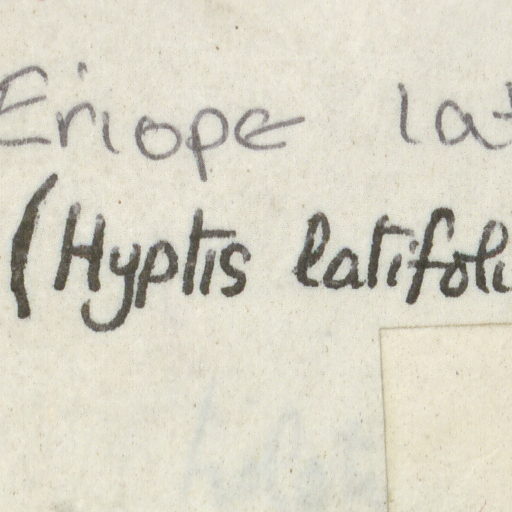 Eriope lat
(Hyptis latifoli